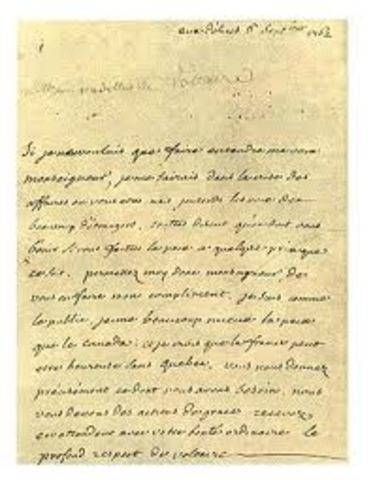 aux Délices 6e Septbre 1762
Voltaire
Si je ne voulais que faire entendre ma voix
monseigneur, je me tairais dans la crise des
affaires ou vous etes mais j'entends les voix de
beaucoup d'étrangers, toutes disent qu'on doit vous
benir si vous faittes la paix a quelque prix que
ce soit. permettez moy donc monseigneur de
vous en faire mon compliment. je suis comme
le public, j'aime beaucoup mieux la paix
que le canada: et je crois que la france peut
etre heureuse sans Quebec. vous nous donnez
précisément ce dont nous avons besoin. nous
vous devons des actions de grace. recevez
en attendant avec votre bonté ordinaire le
profond respect de voltaire